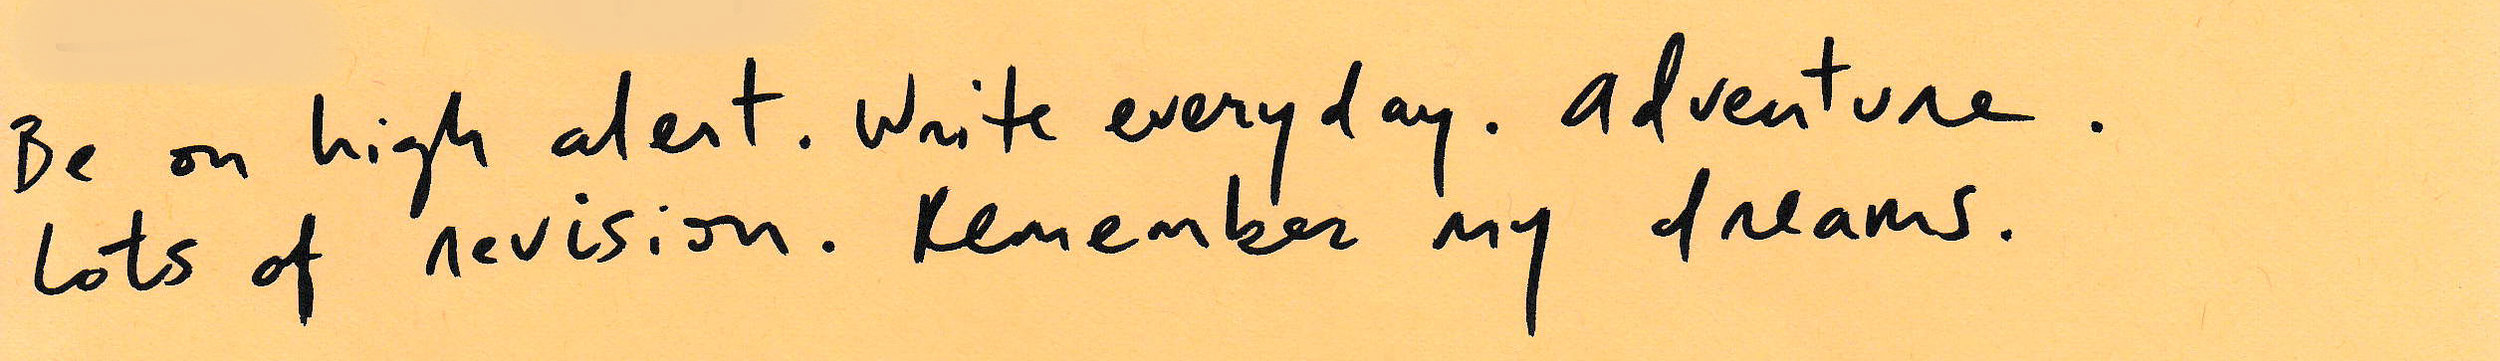 Be on high alert. Write everyday. Adventure.
Lots of revision. Remember my dreams.